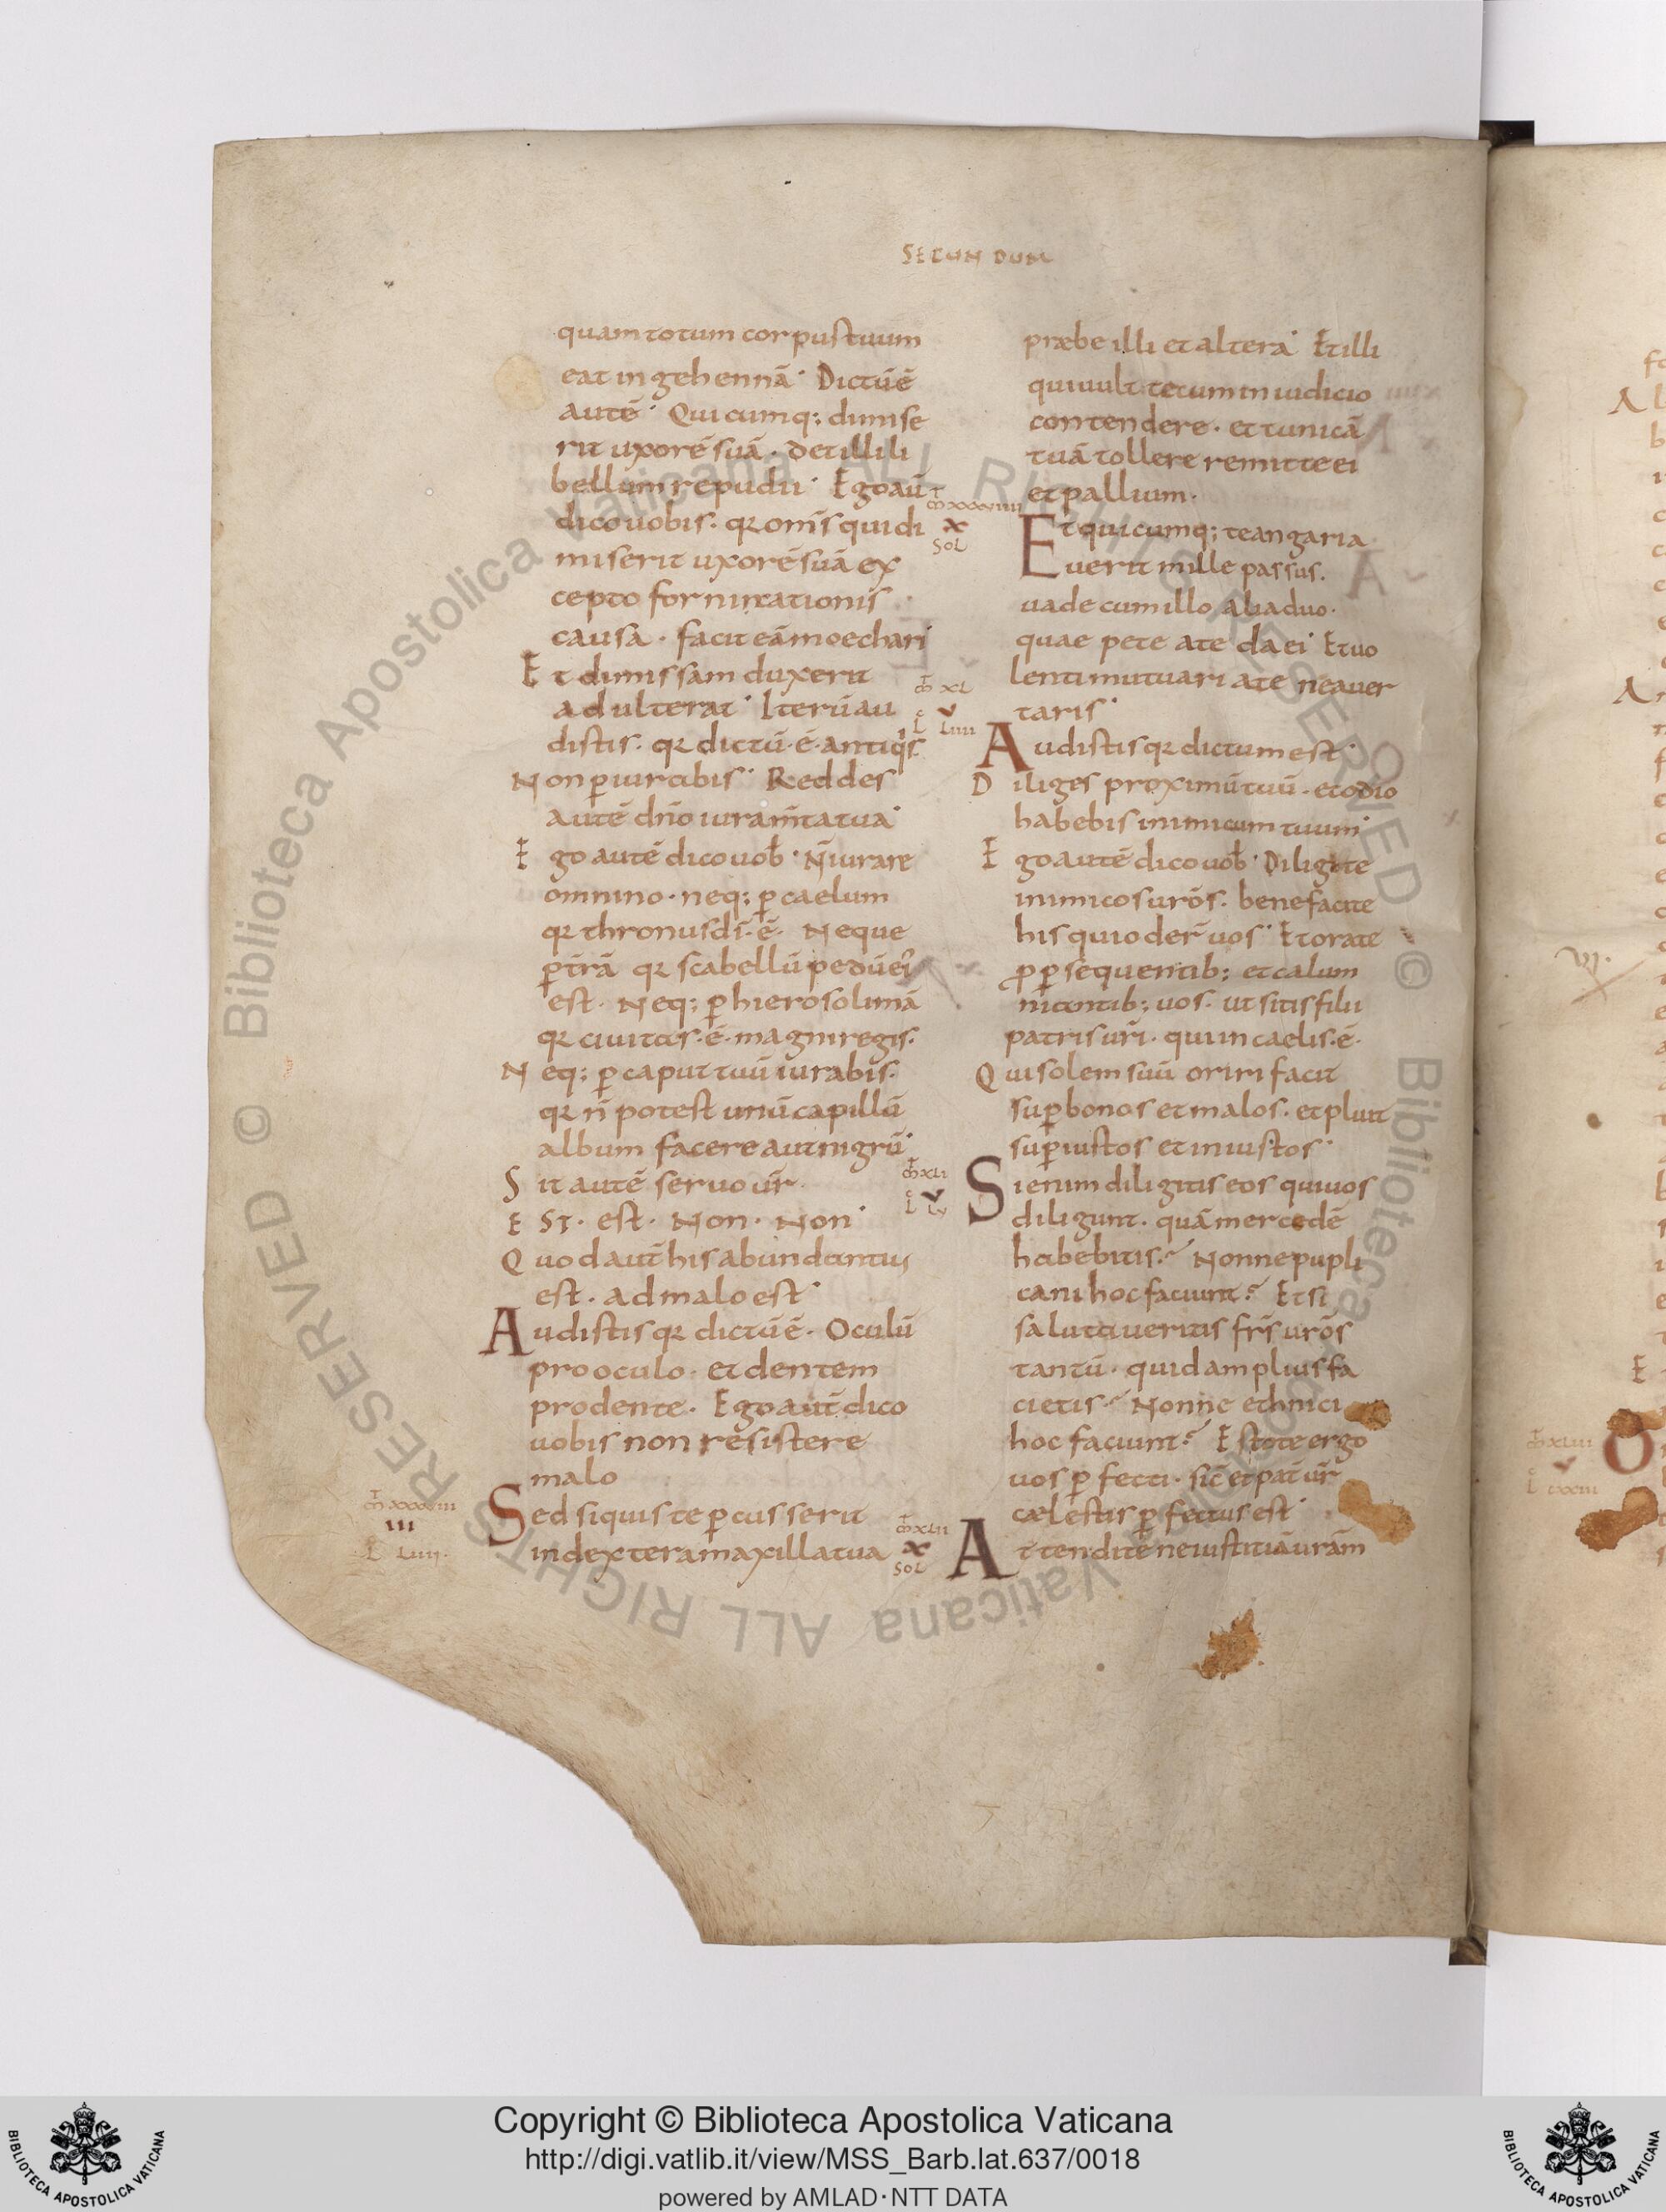 SECUNDUM
quam totum corpus tuum
eat in gehennā· Dictū ē
autē· Quicumq; dimise
rit uxorē suā· det illi li
bellum repudii· Ego aū
dico uobis· qr omīs qui di
miserit uxorē suā ex
cepto fornicationis
causa· facit eā moechari
Et dimissam duxerit
adulterat· Iterū au
distis· qr dictū·ē·antiqis
Non p̄iurabis· Reddes
autē dn̄o iuram̄ta tua·
Ego autē dico uob̄· N̄ iurare
omnino· neq; p̄ caelum
qr thronus dī·ē· Neque
p̄ t̄rā qr scabellū pedū ei'
est· Neq; p̄ hierosolimā
qr ciuitas·ē·magni regis·
Neq; p̄ caput tuū iurabis·
qr n̄ potest unū capillū
album facere aut nigrū·
Sit autē sermo ur̄·
EST· est· Non· Non·
Quod aut̄ his abundantius
est· a d malo est·
Audistis qr dictū ē· Oculū
pro oculo· et dentem
pro dente· Ego aut̄ dico
uobis non resistere
malo
m̄ xxxxviii
III
L LIIII·
Sed siquis te p̄cusserit
in dextera maxilla tua
m̄ xxxxviiii
X
SOL
m̄ XL
V
L LIIII
m̄ XLI
V
L LV
m̄ XLII
X
SOL
præbe illi et alterā· Et illi
qui uult tecum in iudicio
contendere· et tunicā
tuā tollere remitte ei
et pallium·
Et quicumq; te angaria
uerit mille passus·
uade cum illo alia duo·
quae pete a te da ei· Et uo
lenti mutuari a te ne auer
taris·
Audistis qr dictum est·
Diliges proximū tuū· et odio
habebis inimicum tuum·
Ego autē dico uob̄· Diligite
inimicos urōs· benefacite
his qui oder̄ uos· Et orate
p p̄sequentib; et calum
niantib; uos· ut sitis filii
patris ur̄i· qui in caelis·ē·
Qui solem suū oriri facit
sup̄ bonos et malos· et pluit
sup̄ iustos et iniustos·
Si enim diligitis eos qui uos
diligunt· quā mercedē
habebitis? Nonne pupli
cani hoc faciunt? Et si
salutaueritis frīs urōs
tantū· quid amplius fa
cietis? Nonne ethnici
hoc faciunt? Estote ergo
uos p̄fecti· sic̄ et pat̄ ur̄
cælestis p̄fectus est·
Attendite ne iustitiā urām
VI·
m̄ XLIII
V
E
O
Copyright © Biblioteca Apostolica Vaticana
http://digi.vatlib.it/view/MSS_Barb.lat.637/0018
powered by AMLAD·NTT DATA
BIBLIOTECA APOSTOLICA VATICANA
BIBLIOTECA APOSTOLICA VATICANA
© Biblioteca Apostolica Vaticana ALL RIGHTS RESERVED
© Biblioteca Apostolica Vaticana ALL RIGHTS RESERVED